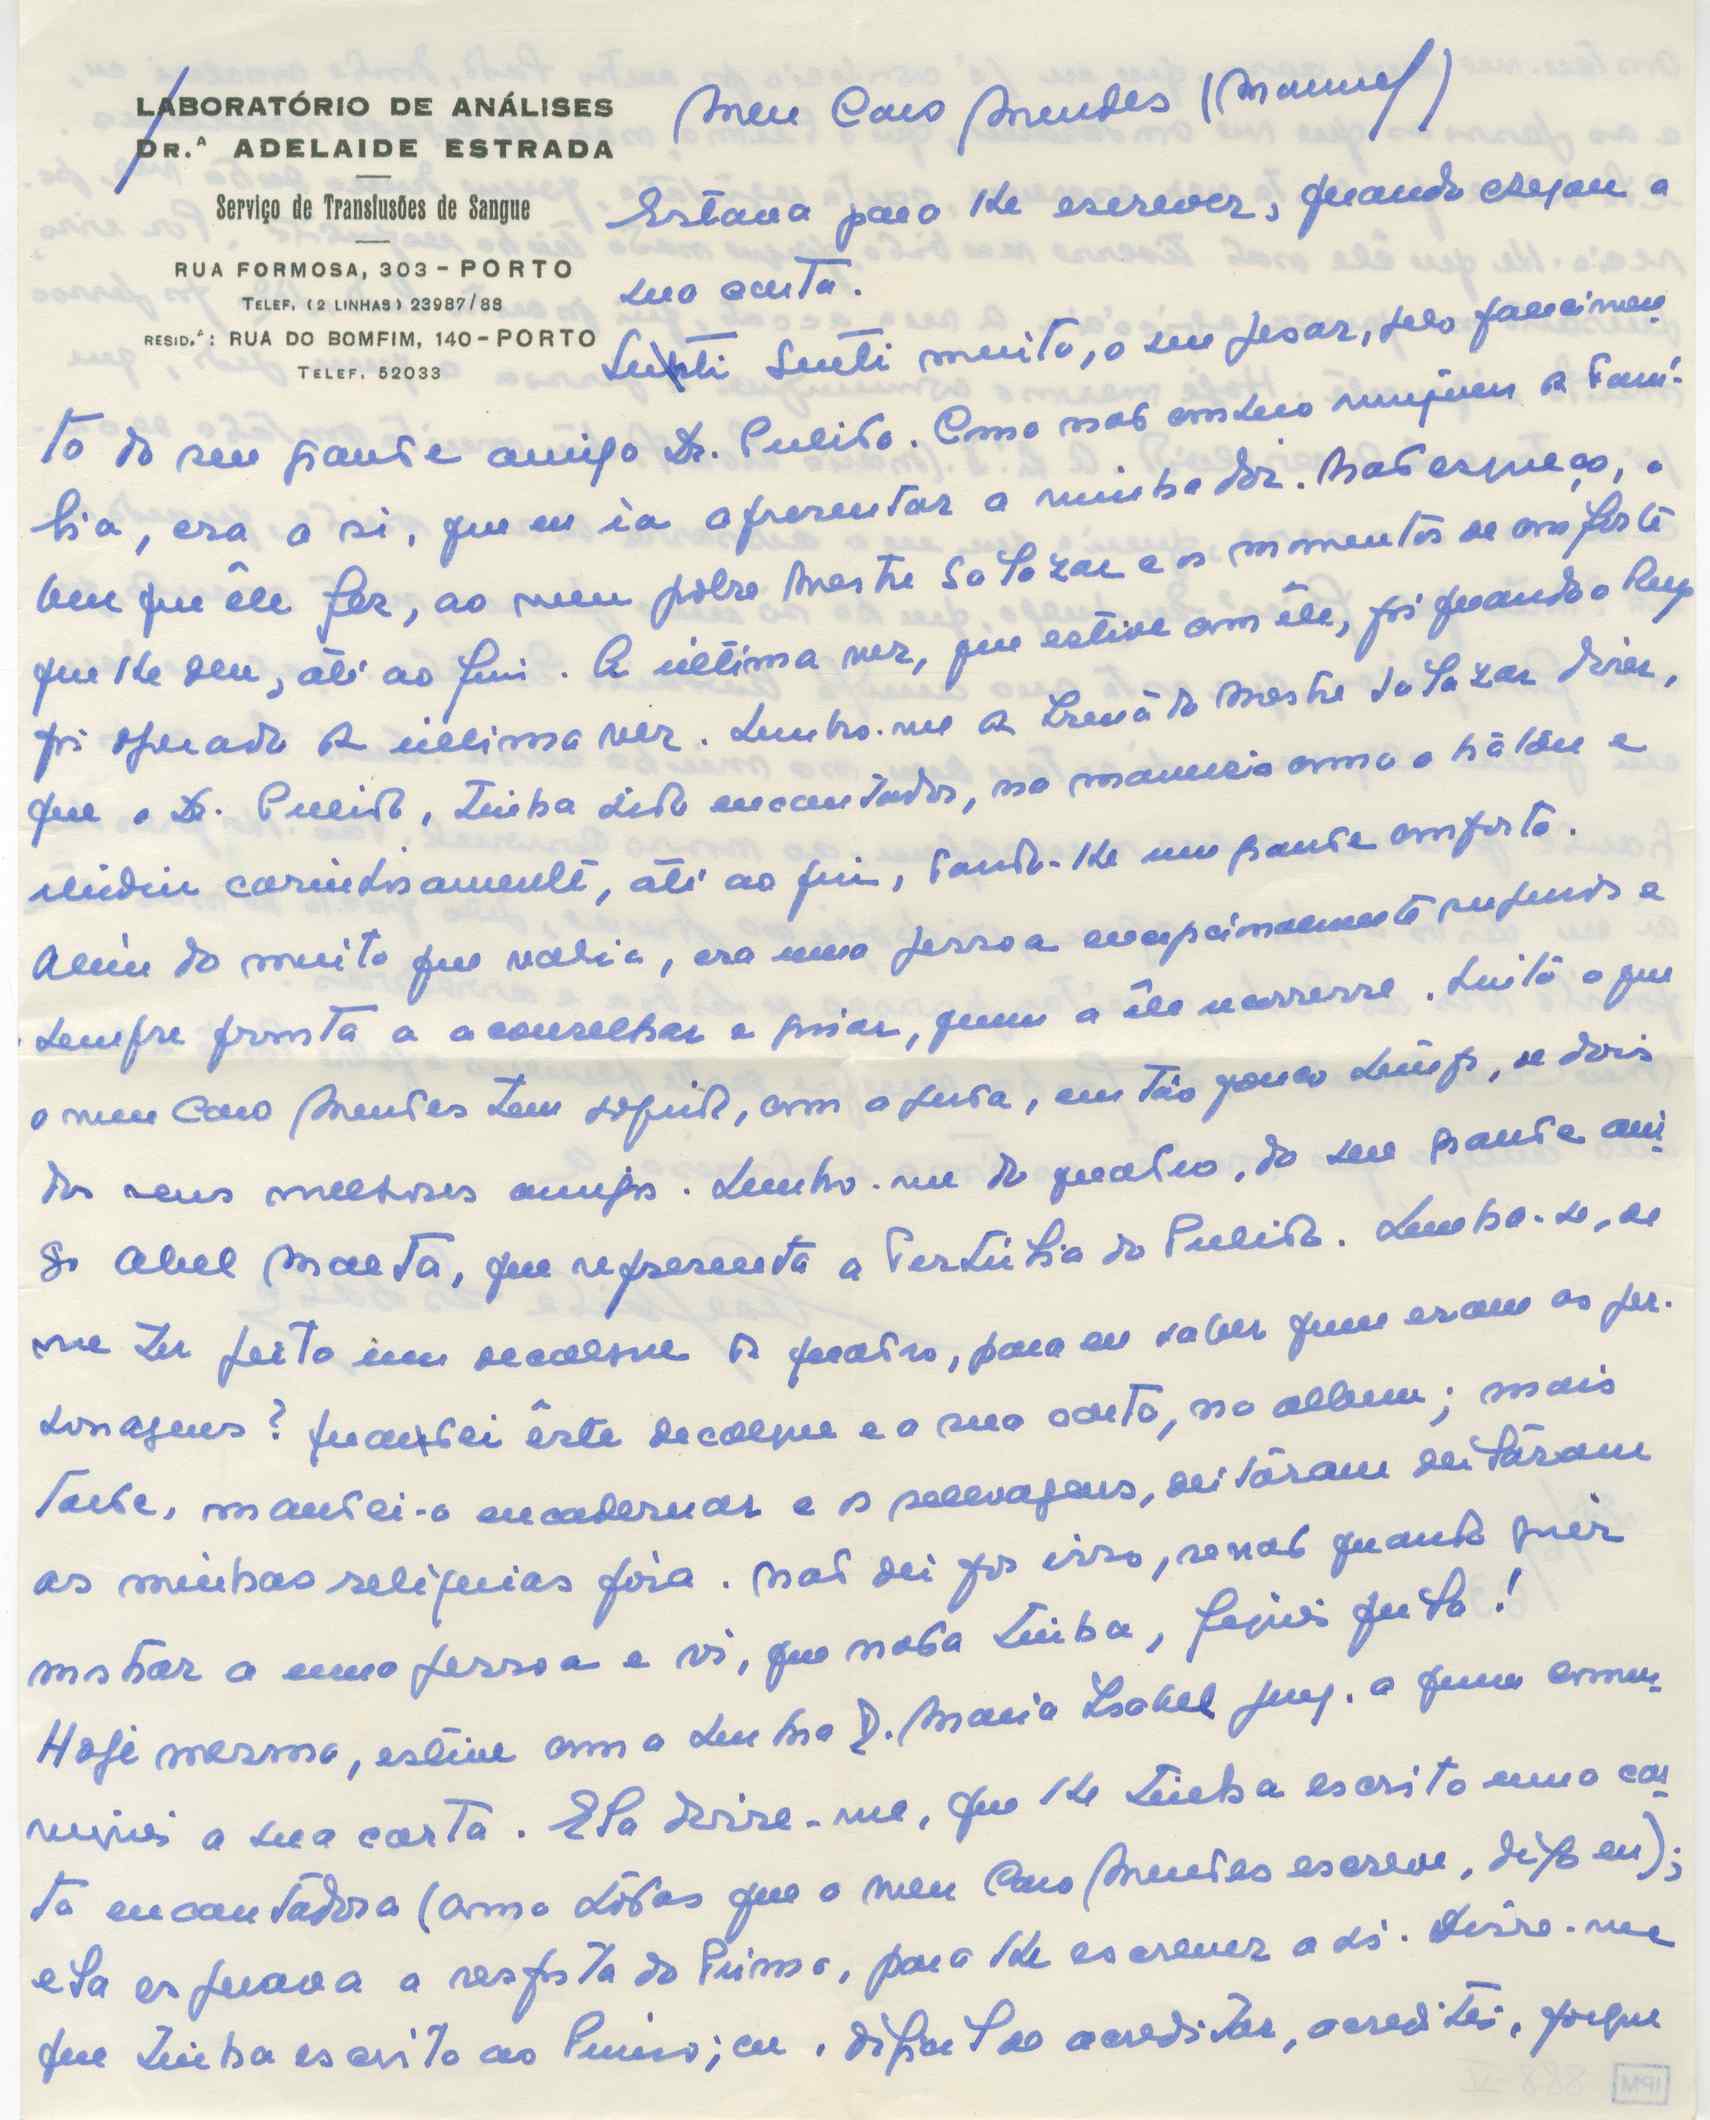 LABORATÓRIO DE ANÁLISES
DR.ª ADELAIDE ESTRADA
Serviço de Transfusões de Sangue
RUA FORMOSA, 303 - PORTO
TELEF. (2 LINHAS) 23987/88
RESID.ª: RUA DO BOMFIM, 140 - PORTO
TELEF. 52033
Meu Caro Mendes (Manuel)
Estava para lhe escrever, quando chegou a
sua carta.
Senti muito, o seu pesar, pelo falecimen-
to do seu grande amigo Dr. Pulido. Como não conheço ninguém da Famí-
lia, era a si, que eu ia apresentar a minha dôr. Não esqueço, o
bem que êle fez, ao meu pobre Mestre Salazar e os momentos de conforto
que lhe deu, até ao fim. A última vez, que estive com êle, foi quando o Ruy
foi operado a última vez. Lembro-me a Irmã do Mestre Salazar dizer,
que o Dr. Pulido, tinha sido encantador, na maneira como o
iludiu carinhosamente, até ao fim, dando-lhe um grande conforto.
Além do muito que valia, era uma pessoa excepcionalmente
sempre pronta a aconselhar e guiar, quem a êle recorresse. Sinto o que
o meu Caro Mendes tem sofrido, com a perda, em tão pouco tempo, de dois
dos seus melhores amigos. Lembro-me do quadro, do seu grande ami-
go Abel Manta, que representa a Tertúlia do Pulido. Lembra-se, de
me ter feito um decalque do quadro, para eu saber quem eram as per-
sonagens? Guardei êste decalque e a sua carta, no album; mais
tarde, mandei-o encadernar e os selvagens, deitáram deitáram
as minhas relíquias fóra. Não dei por isso, senão quando quiz
mostrar a uma pessoa e vi, que nada tinha, fiquei
Hoje mesmo, estive com a Senhora D. Maria Isabel a quem comu-
niquei a sua carta. Ela disse-me, que lhe tinha escrito uma car-
ta encantadora (como todas que o meu Caro Mendes escreve, digo eu);
ela esperava a resposta do Primo, para lhe escrever a si. Disse-me
que tinha escrito ao Primo; eu, acreditar, acreditei, porque
IPM